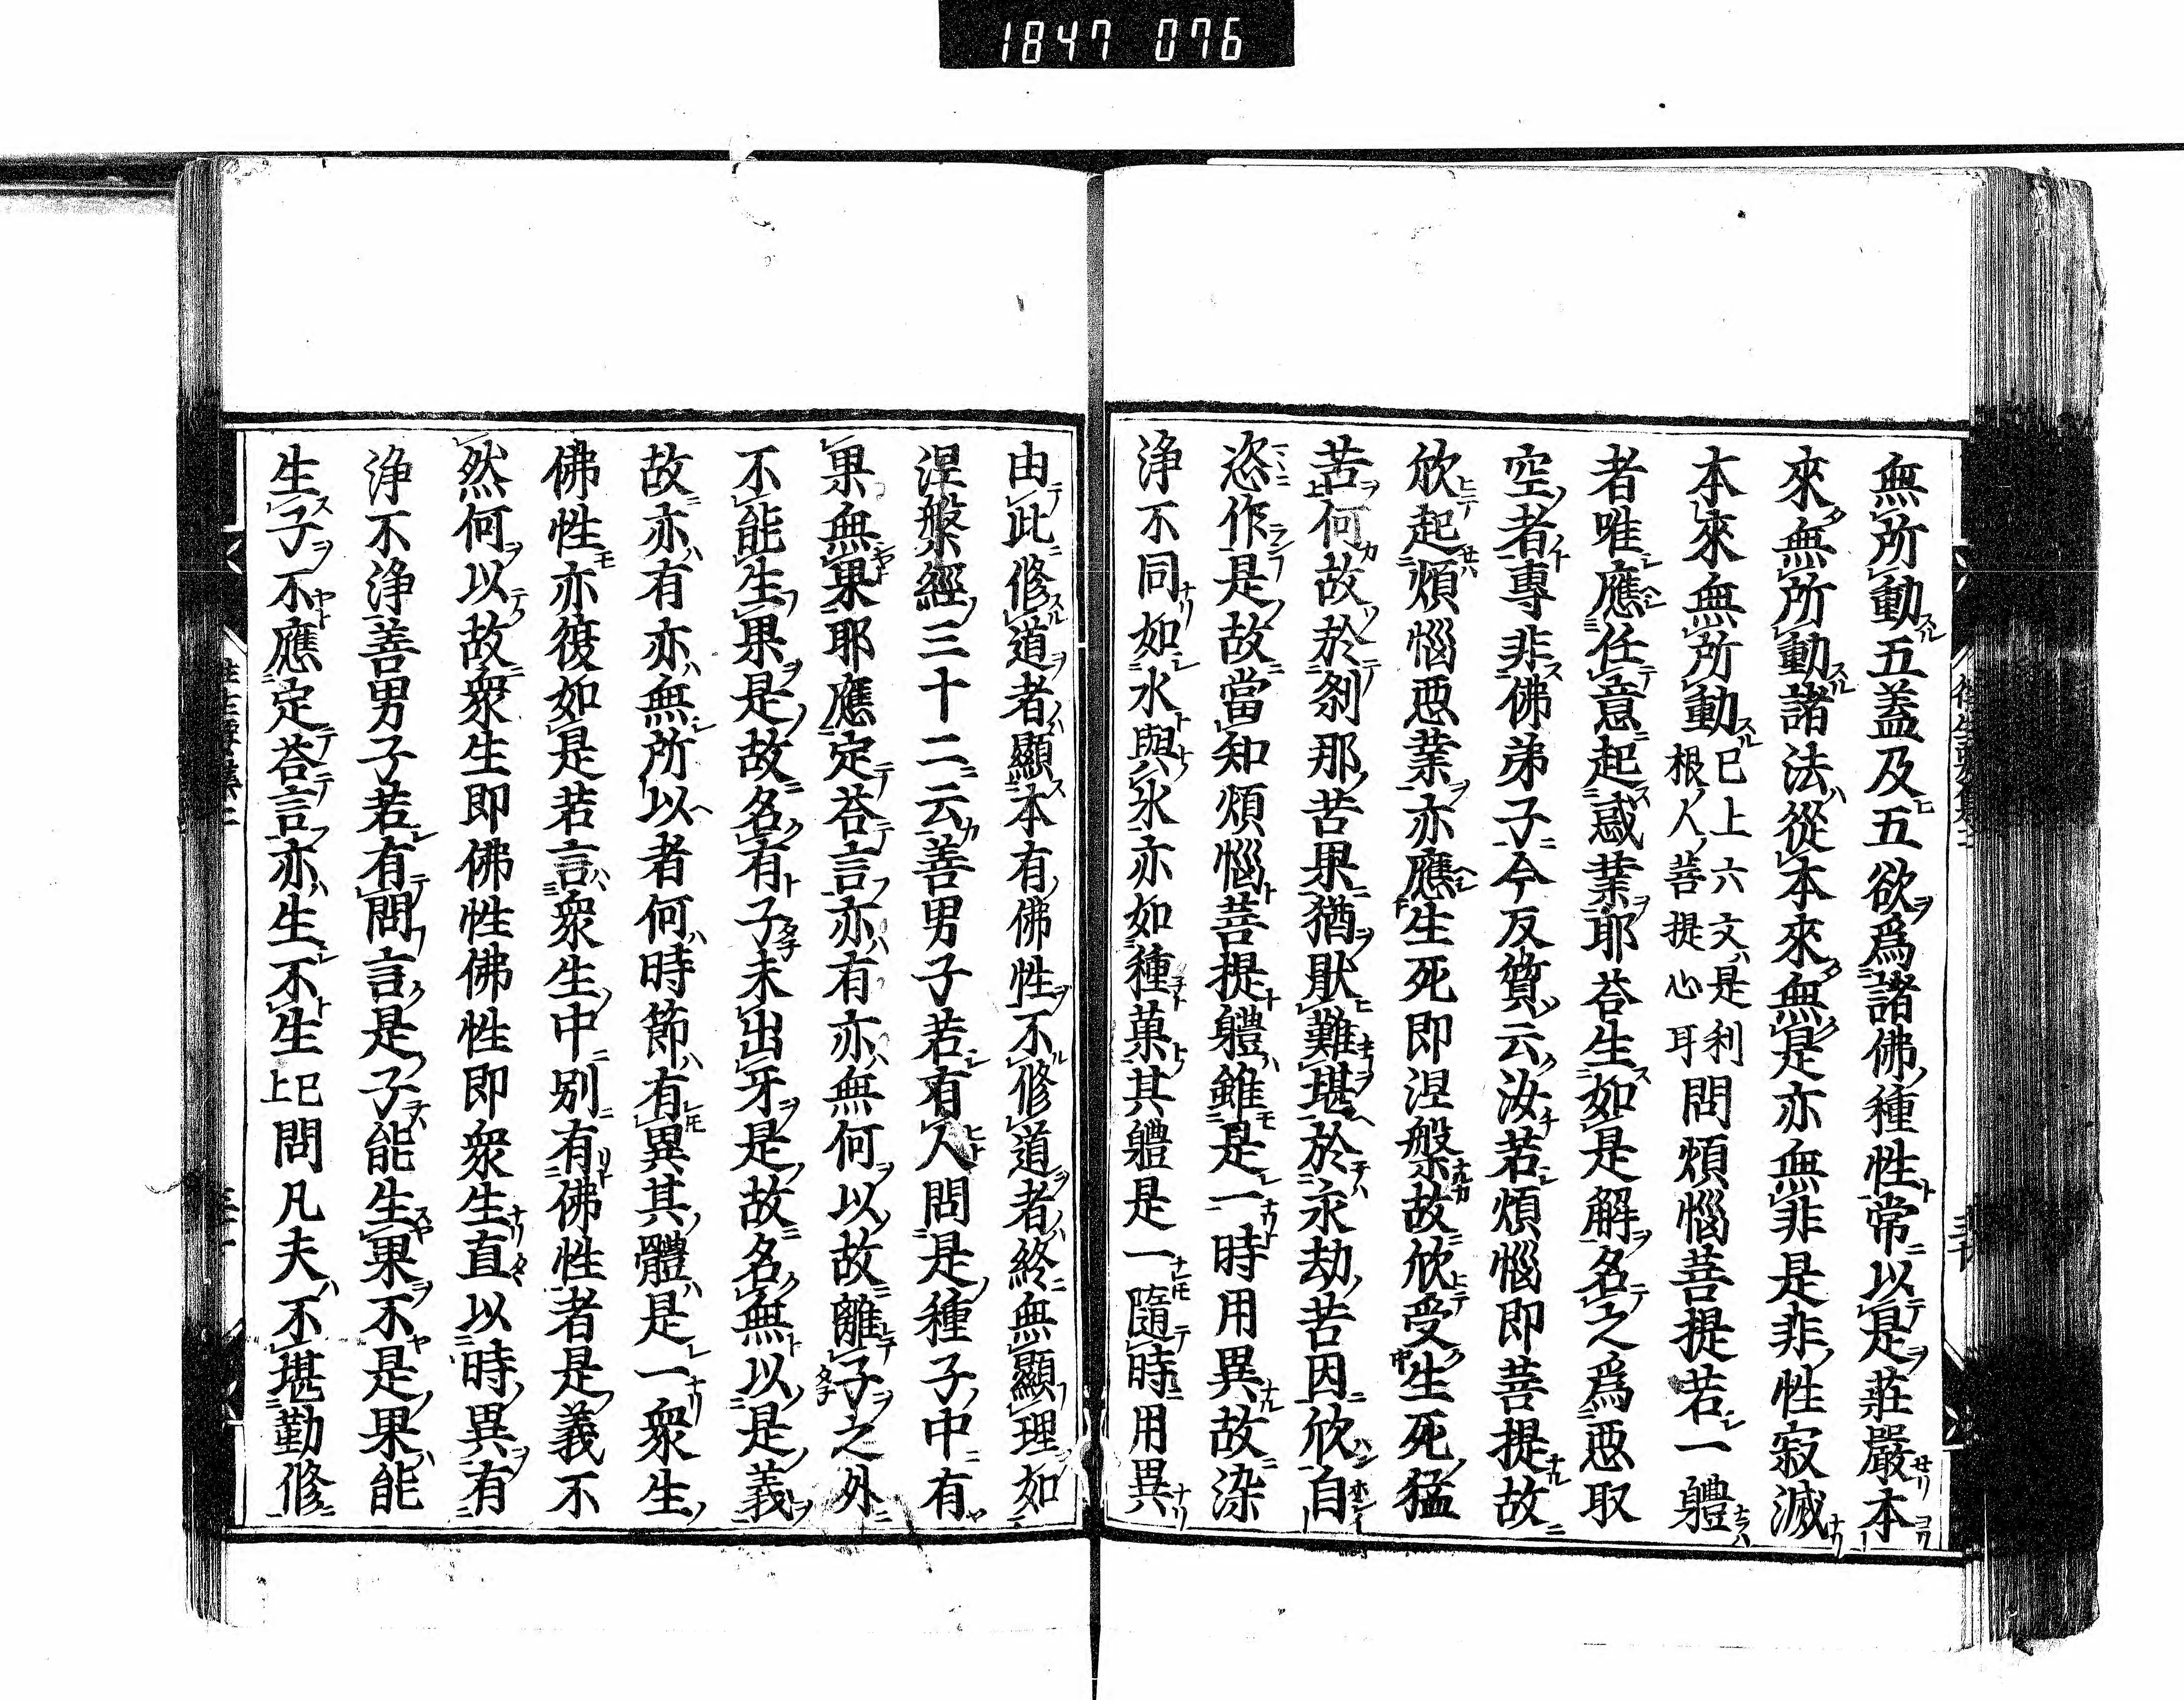 1847 076
無所動五蓋及五欲爲諸佛種性常以是莊嚴本
來無所動諸法從本來無是亦無非是非性寂滅
本來無所動已上六文是利根人菩提心耳問煩惱菩提若一體
者唯應任意起惑業耶荅生如是解名之爲惡取
空者專非佛弟子今反質云汝若煩惱即菩提故
欣起煩惱惡業亦應生死即涅槃故欣受生死猛
苦何故於刹那苦果猶厭難堪於永劫苦因欣自
恣作是故當知煩惱菩提體雖是一時用異故染
淨不同如水與氷亦如種菓其體是一隨時用異
由此修道者顯本有佛性不修道者終無顯理如
涅槃經三十二云善男子若有人問是種子中有
果無果耶應定荅言亦有亦無何以故離子之外
不能生果是故名有子未出牙是故名無以是義
故亦有亦無所以者何時節有異其體是一衆生
佛性亦復如是若言衆生中別有佛性者是義不
然何以故衆生即佛性佛性即衆生直以時異有
淨不淨善男子若有問言是子能生果不是果能
生子不應定荅言亦生不生已上問凡夫不堪勤修